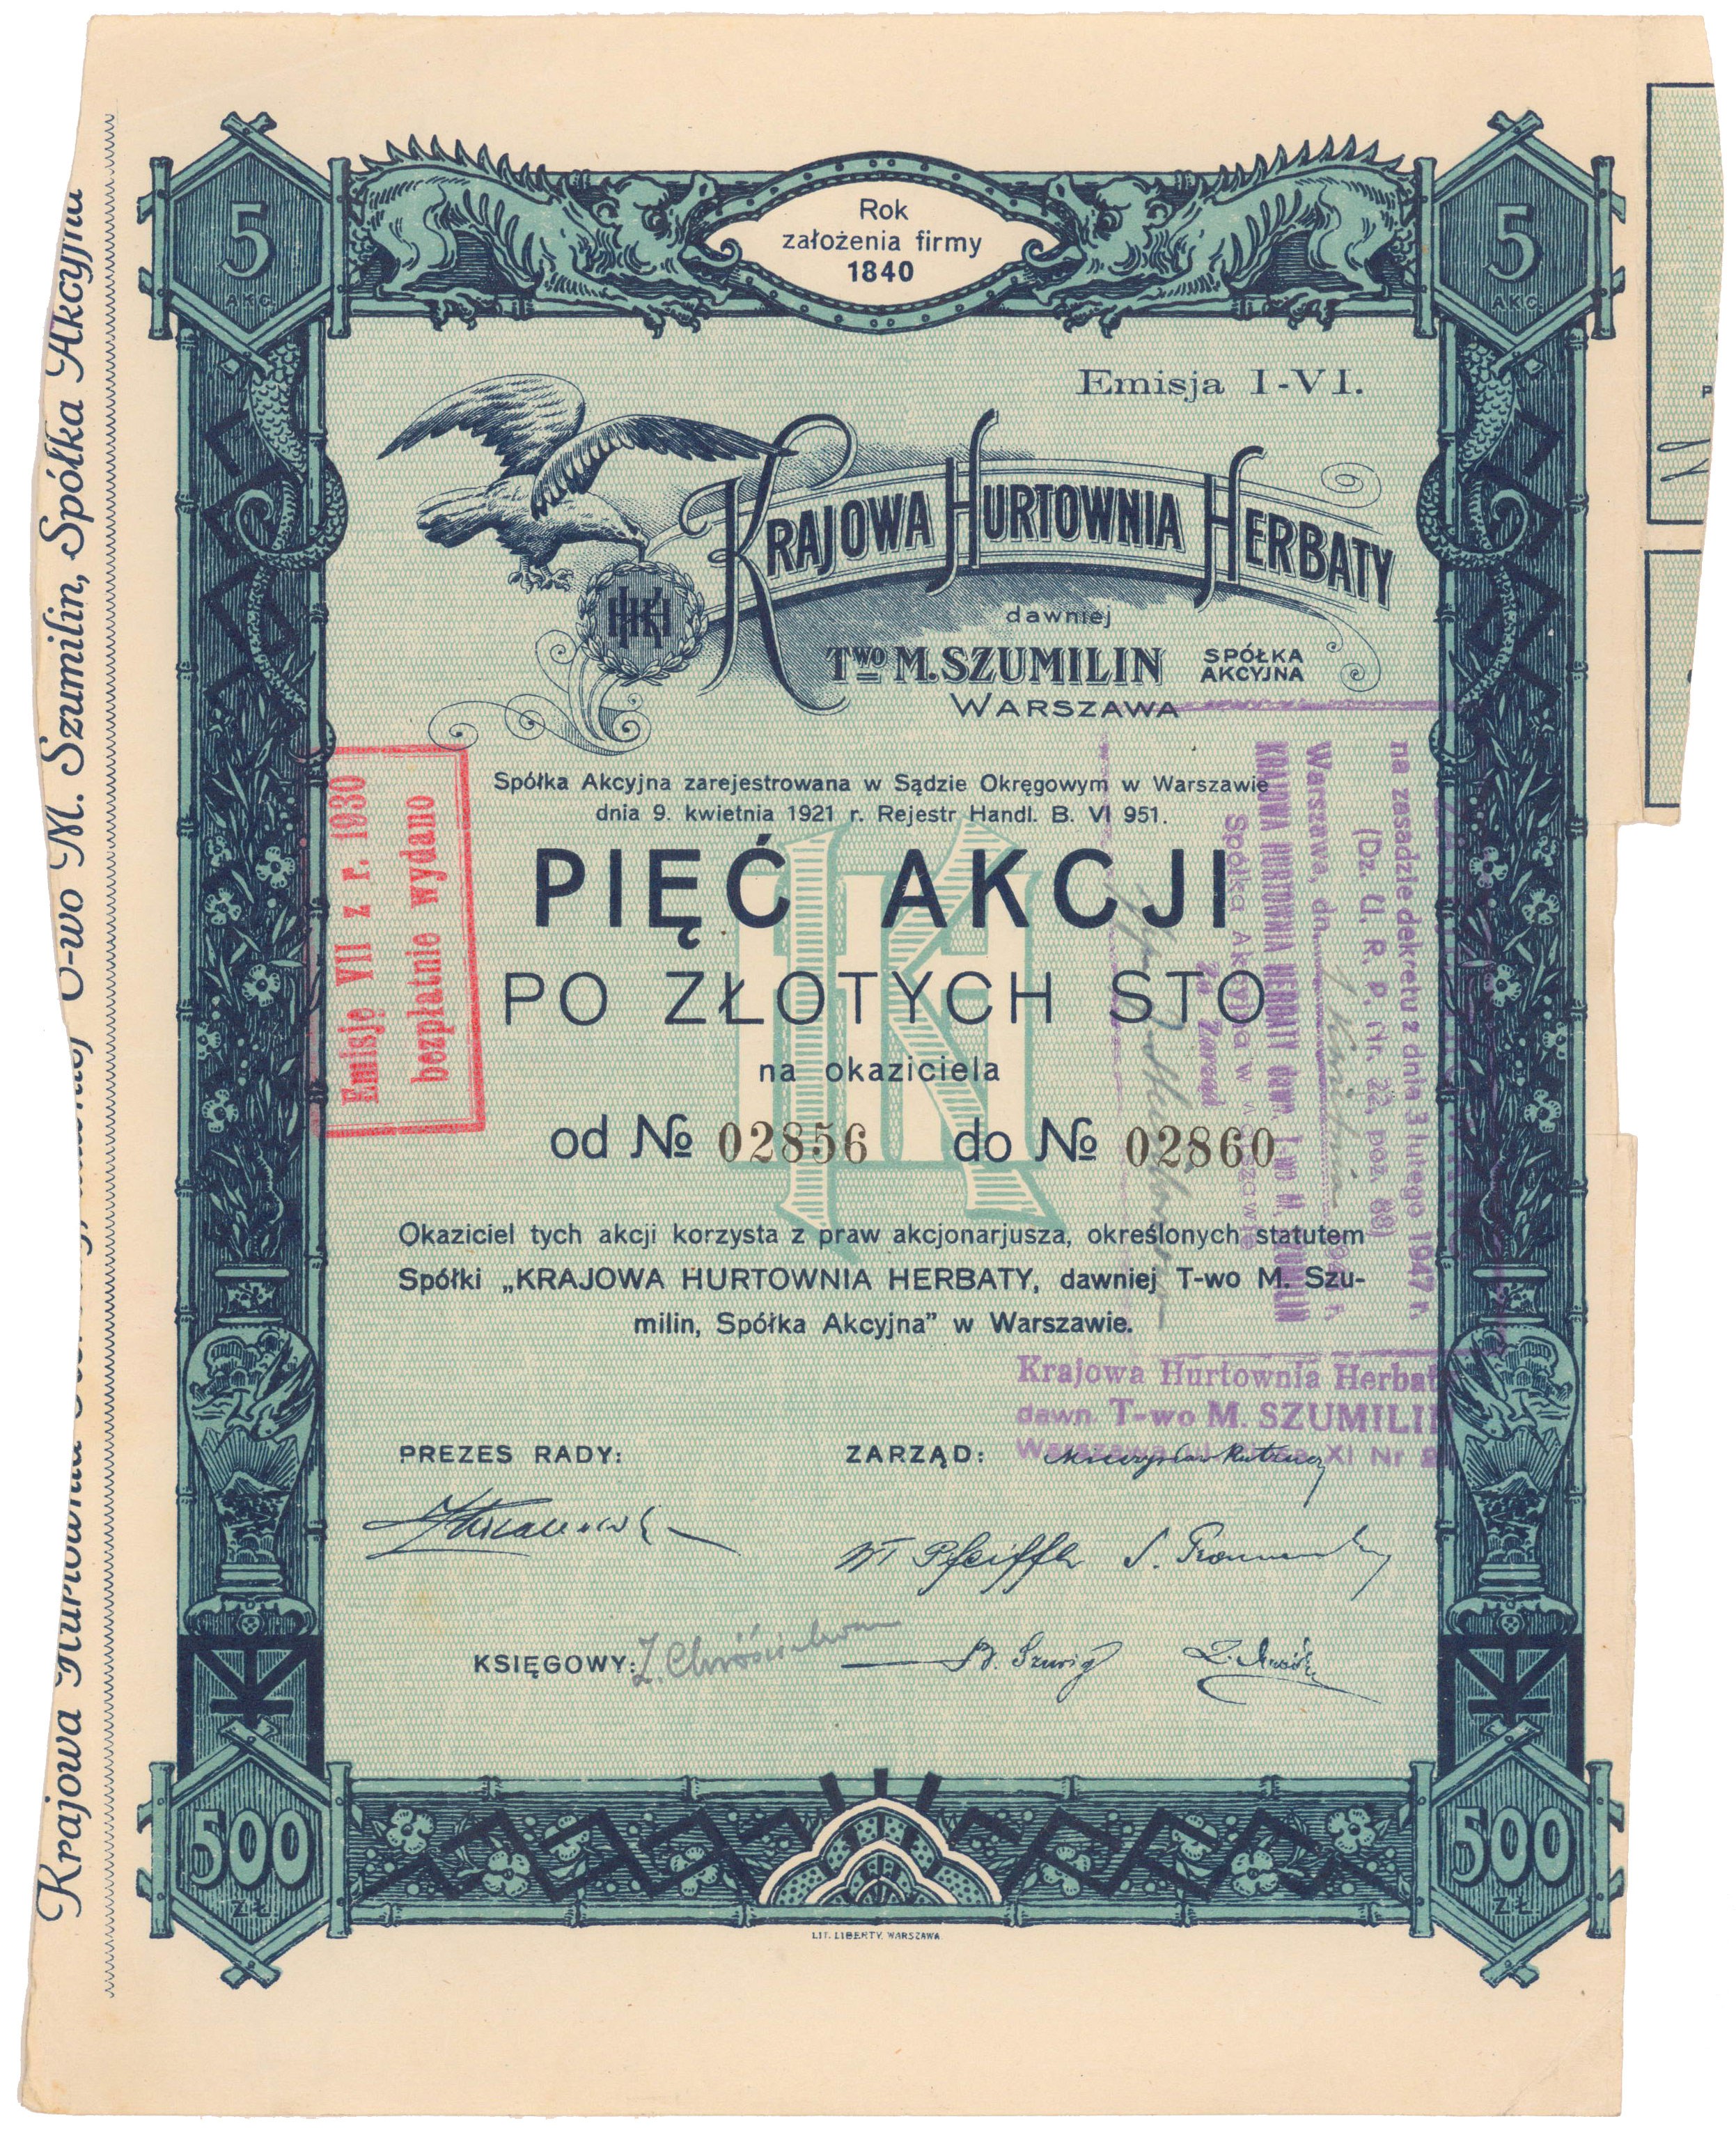 5
AKC.
Rok
założenia firmy
1840
5
AKC.
Emisja I-VI.
KRAJOWA HURTOWNIA HERBATY
HKH
dawniej
TWO M. SZUMILIN SPÓŁKA
AKCYJNA
WARSZAWA
Spółka Akcyjna zarejestrowana w Sądzie Okręgowym w Warszawie
dnia 9. kwietnia 1921 r. Rejestr Handl. B. VI 951.
PIĘĆ AKCJI
PO ZŁOTYCH STO
na okaziciela
od № 02856 do № 02860
Okaziciel tych akcji korzysta z praw akcjonarjusza, określonych statutem
Spółki „KRAJOWA HURTOWNIA HERBATY, dawniej T-wo M. Szu-
milin, Spółka Akcyjna” w Warszawie.
PREZES RADY:
ZARZĄD:
W Pfeiffer
KSIĘGOWY:
500
ZŁ.
500
ZŁ.
LIT. LIBERTY, WARSZAWA.
Emisję VII z r. 1930
bezpłatnie wydano
na zasadzie dekretu z dnia 3 lutego 1947 r.
(Dz. U. R. P. Nr. 22, poz. 88)
Warszawa, dn.
KRAJOWA HURTOWNIA HERBATY dawn. T-wo M. SZUMILIN
Spółka Akcyjna w Warszawie
Zarząd
Krajowa Hurtownia Herbaty
dawn. T-wo M. SZUMILIN
Warszawa XI Nr
Krajowa Hurtownia
T-wo M. Szumilin, Spółka Akcyjna